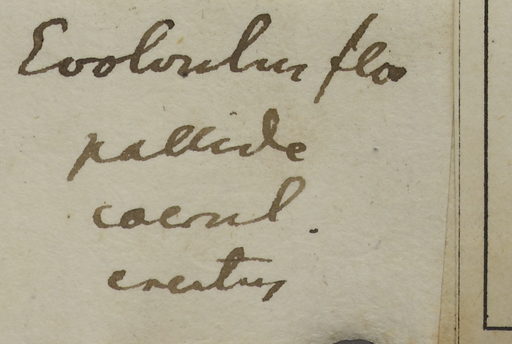 Evolvulus flos
pallide
coerul.
erectus